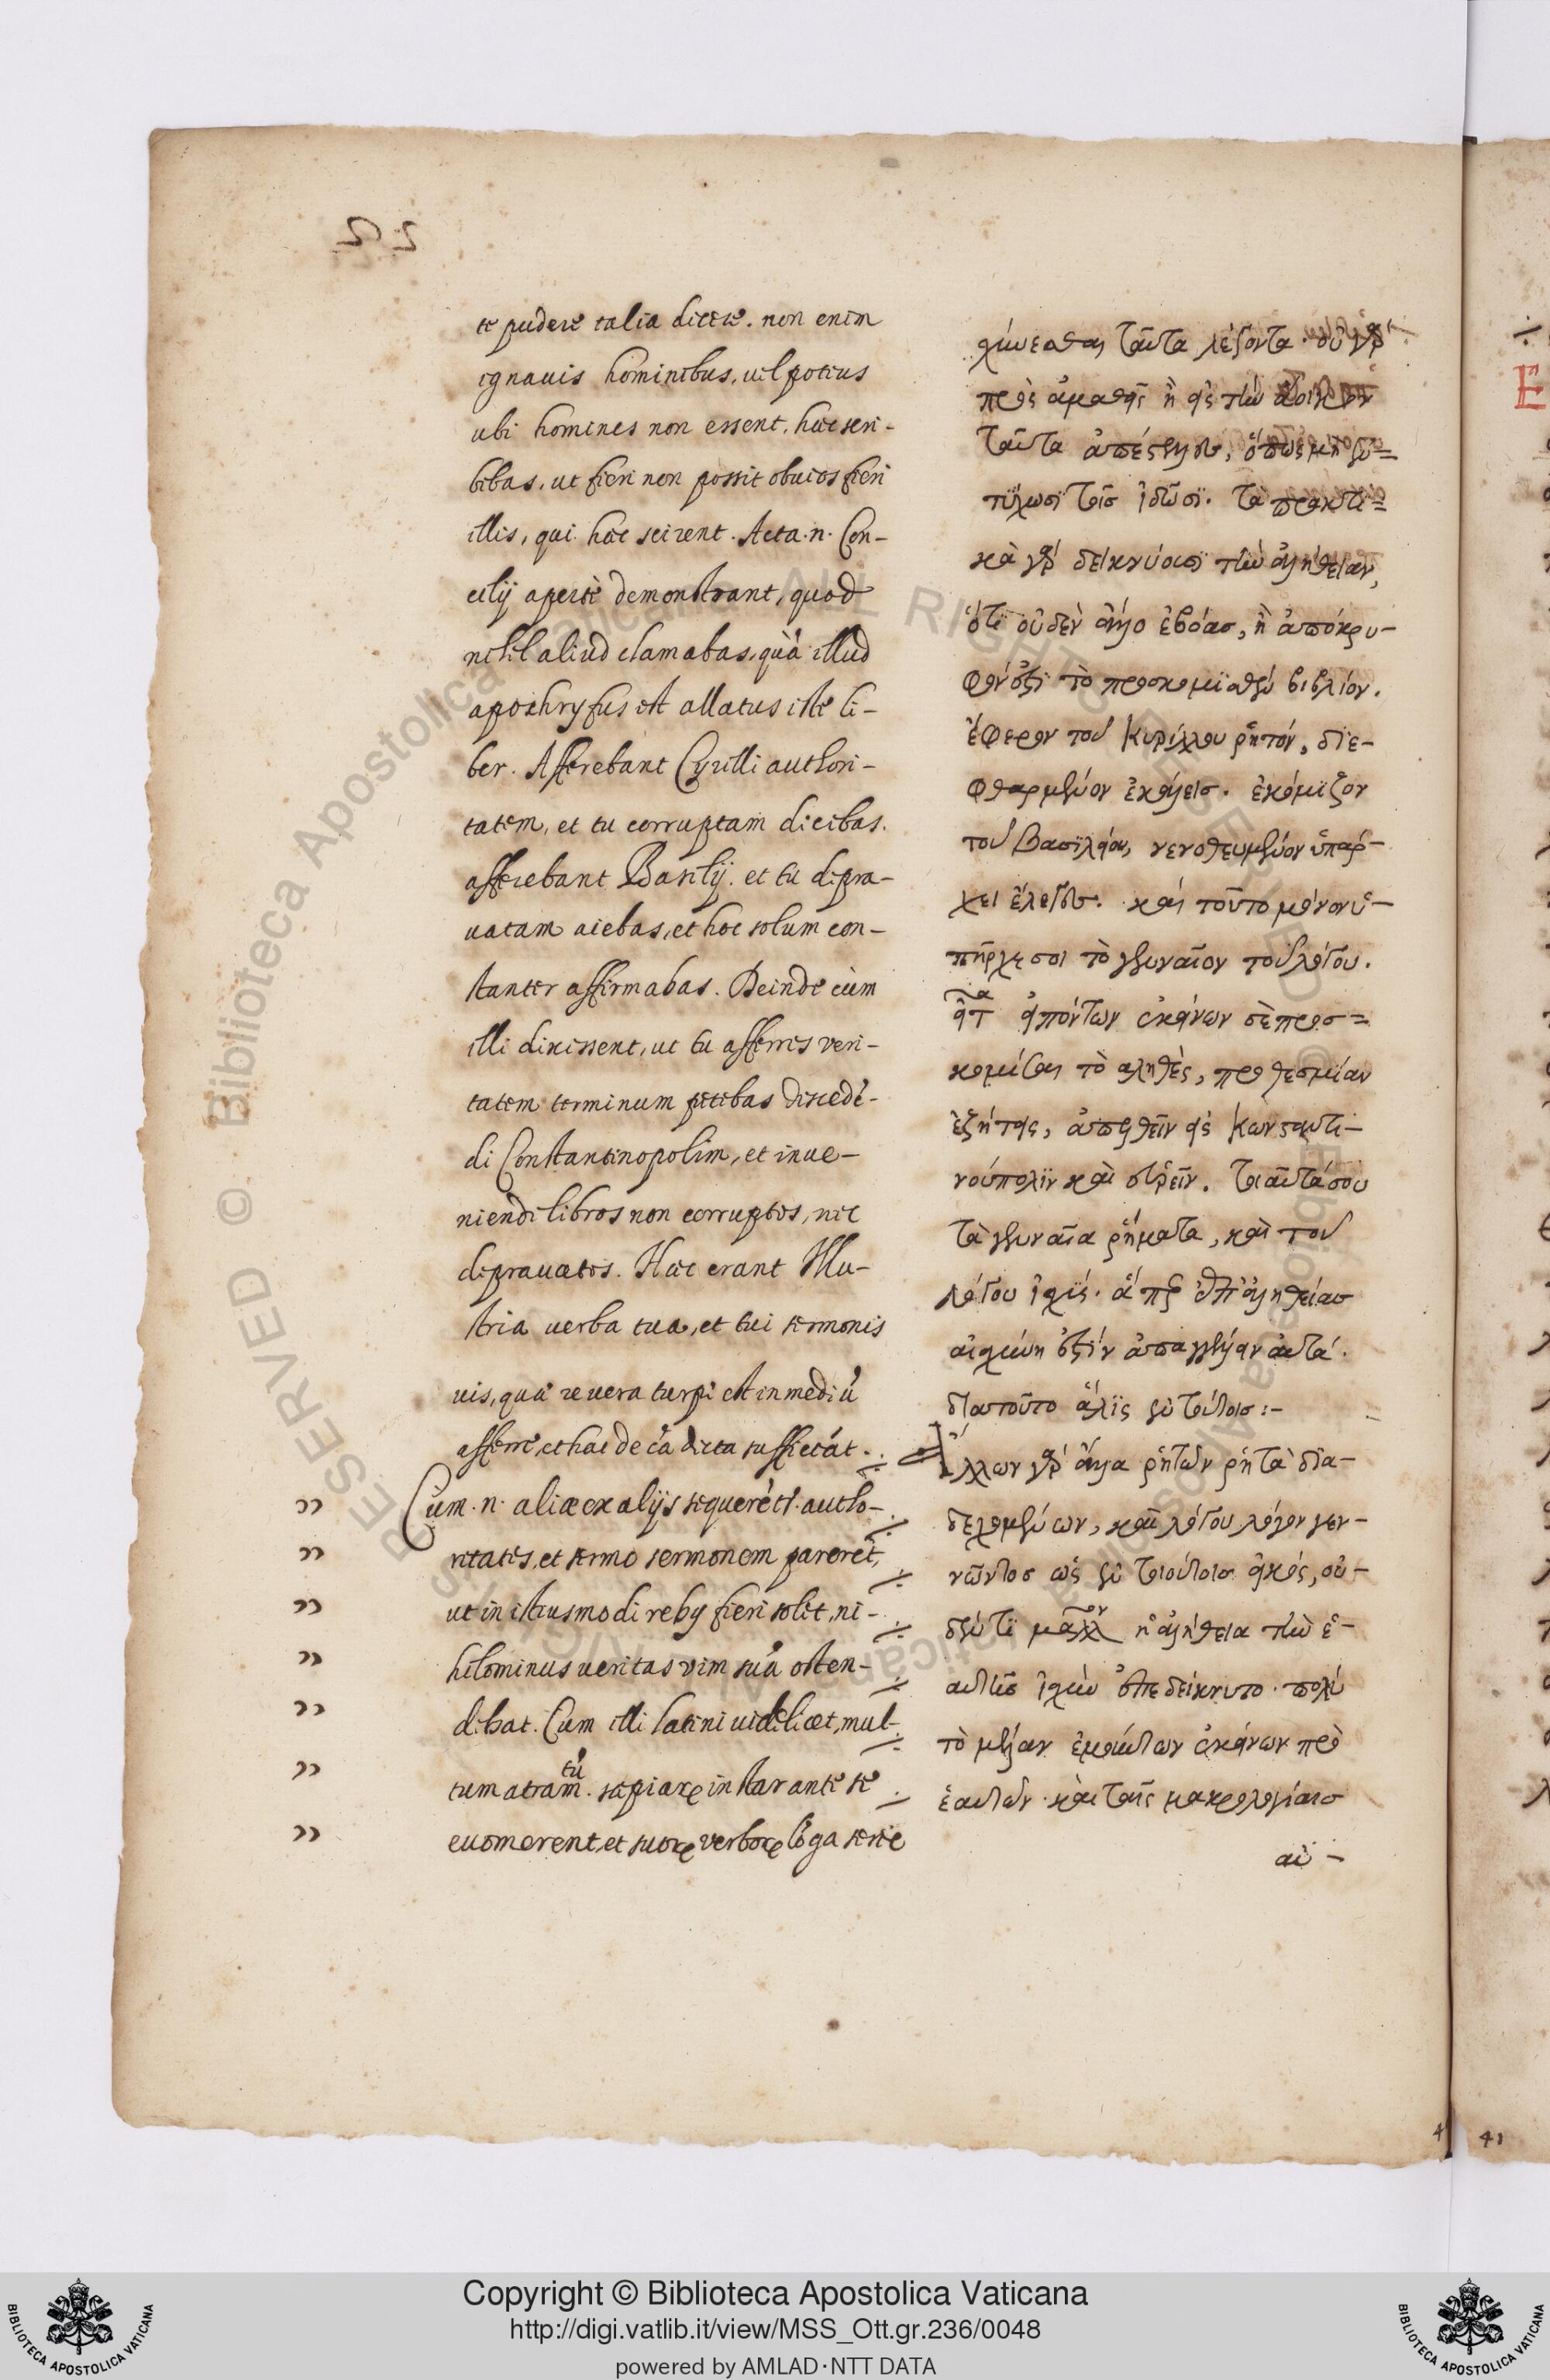 te pudere talia dicere. non enim
ignauis hominibus, uel potius
ubi homines non essent, hæc scri-
bebas, ut fieri non possit obuios fieri
illis, qui hæc scirent. Acta .n. Con-
cilij aperte demonstrant, quod
nihil aliud clamabas, quā illud
apochryfus est allatus iste li-
ber. Afferebant Cyrilli authori-
tatem, et tu corruptam dicebas.
afferebant Basilij. et tu depra-
uatam aiebas, et hoc solum con-
stanter affirmabas. Deinde cùm
illi dixissent, ut tu afferres veri-
tatem terminum petebas discedē-
di Constantinopolim, et inue-
niendi libros non corruptos, nec
deprauatos. Hæc erant Illu-
stria uerba tua, et tui sermonis
uis, quæ reuera turpe est in mediū
afferre, et hæc de eā dicta sufficiāt.
Cum .n. aliæ ex alijs sequerētr autho-
ritates, et sermo sermonem pareret,
ut in istiusmodi rebꝫ fieri solet, ni-
hilominus ueritas vim suā osten-
debat. Cum illi latini uidelicet, mul-
tum atramtū. sepiaꝝ instar ante se
euomerent, et suoꝝ verboꝝ lōga serie
χύνεσθαι ταῦτα λέγοντα. οὐ γὰρ
πρὸς ἀμαθεῖς ἢ εἰς τὴν
ταῦτα ἀπέστειλας, ὅπως μὴ ἐν-
τύχωσϊ τοῖς ἰδῶσϊ. τὰ πρακτι-
κὰ γὰρ δεικνύουσϊ τὴν ἀλήθειαν,
ὅτϊ οὐδὲν ἄλλο ἐβόας, ἢ ἀπόκρυ-
φόν ἐστϊ τὸ προσκομϊσθὲν βιβλίον.
ἔφερον τοῦ Κυρίλλου ῥητόν, δϊε-
φθαρμένον ἐκάλεις. ἐκόμϊζον
τοῦ Βασϊλείου, νενοθευμένον ὑπάρ-
χει ἔλεγες. καὶ τοῦτο μόνον ὑ-
πῆρχε σοι τὸ γενναῖον τοῦ λόγου.
εἶτα εἰπόντων ἐκείνων σὲ προσ-
κομίσαι τὸ αληθὲς, προθεσμίαν
ἐζήτεις, ἀπελθεῖν εἰς Κωνσταντι-
νούπολϊν καὶ εὑρεῖν. τοιαῦτά σου
τὰ γενναῖα ῥήματα, καὶ τοῦ
λόγου ἰσχύς. ἅπερ ἐπ' ἀληθείας
αἰσχύνη ἐστὶν ἀπαγγέλλειν αὐτά.
διατοῦτο ἅλϊς ἐν τούτοις:-
Ἄλλων γὰρ ἄλλα ῥητῶν ῥητὰ δϊα-
δεχομένων, καὶ λόγου λόγον γεν-
νῶντος ὡς ἐν τοιούτοις εἰκός, οὐ-
δέν τϊ μᾶλλον ἡ ἀλήθεια τὴν ἑ-
αυτῆς ἰσχὺν ἐπεδείκνυτο. πολὺ
τὸ μέλαν ἐμούντων ἐκείνων πρὸ
ἑαυτῶν. καὶ ταῖς μακρολογίαις
αὐ-
41
Copyright © Biblioteca Apostolica Vaticana
http://digi.vatlib.it/view/MSS_Ott.gr.236/0048
powered by AMLAD·NTT DATA